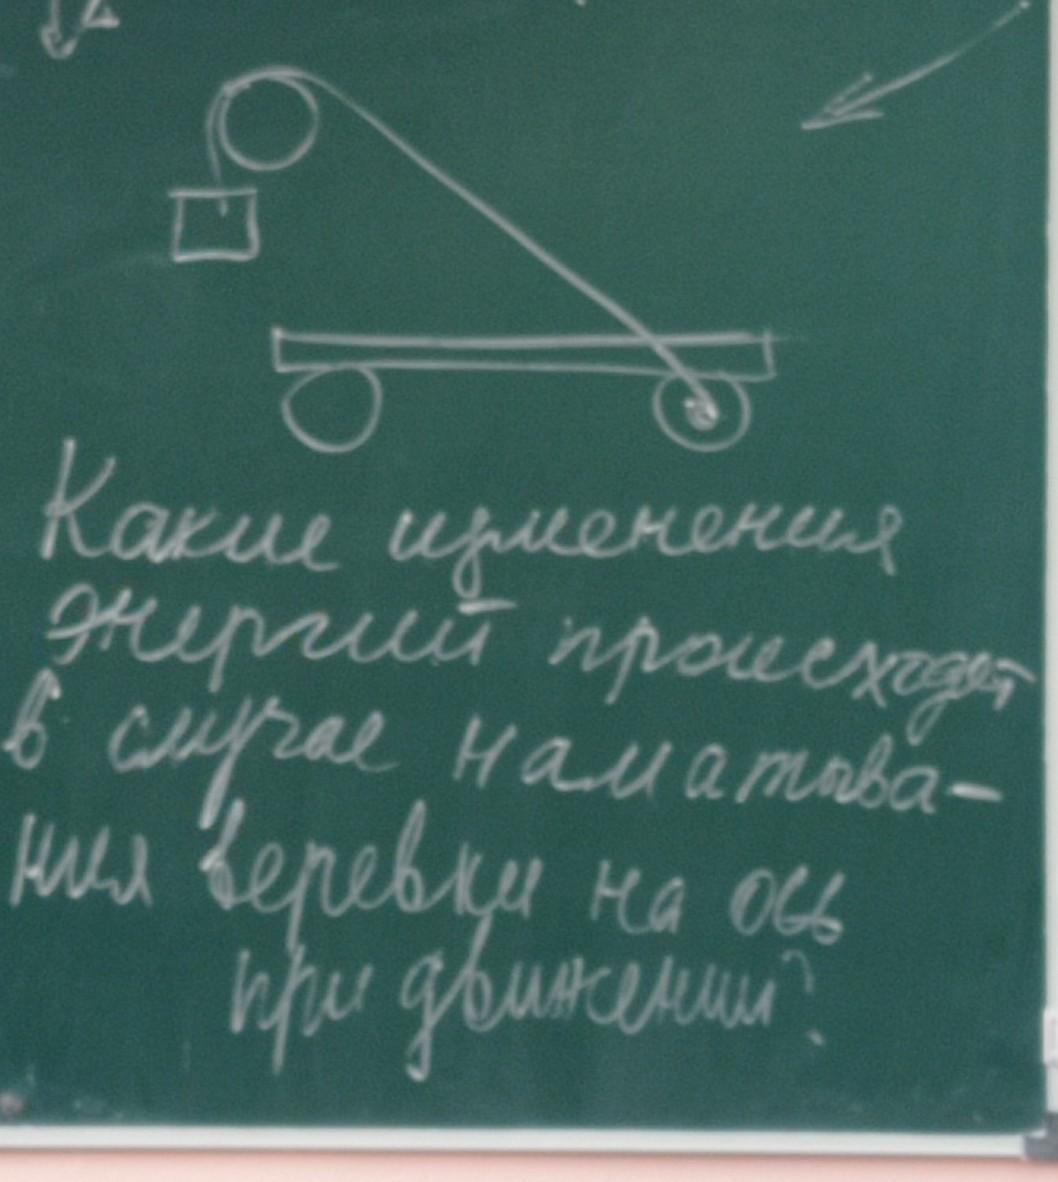 Какие изменения
энергий происходят
в случае наматыва-
ния веревки на ось
при движении?